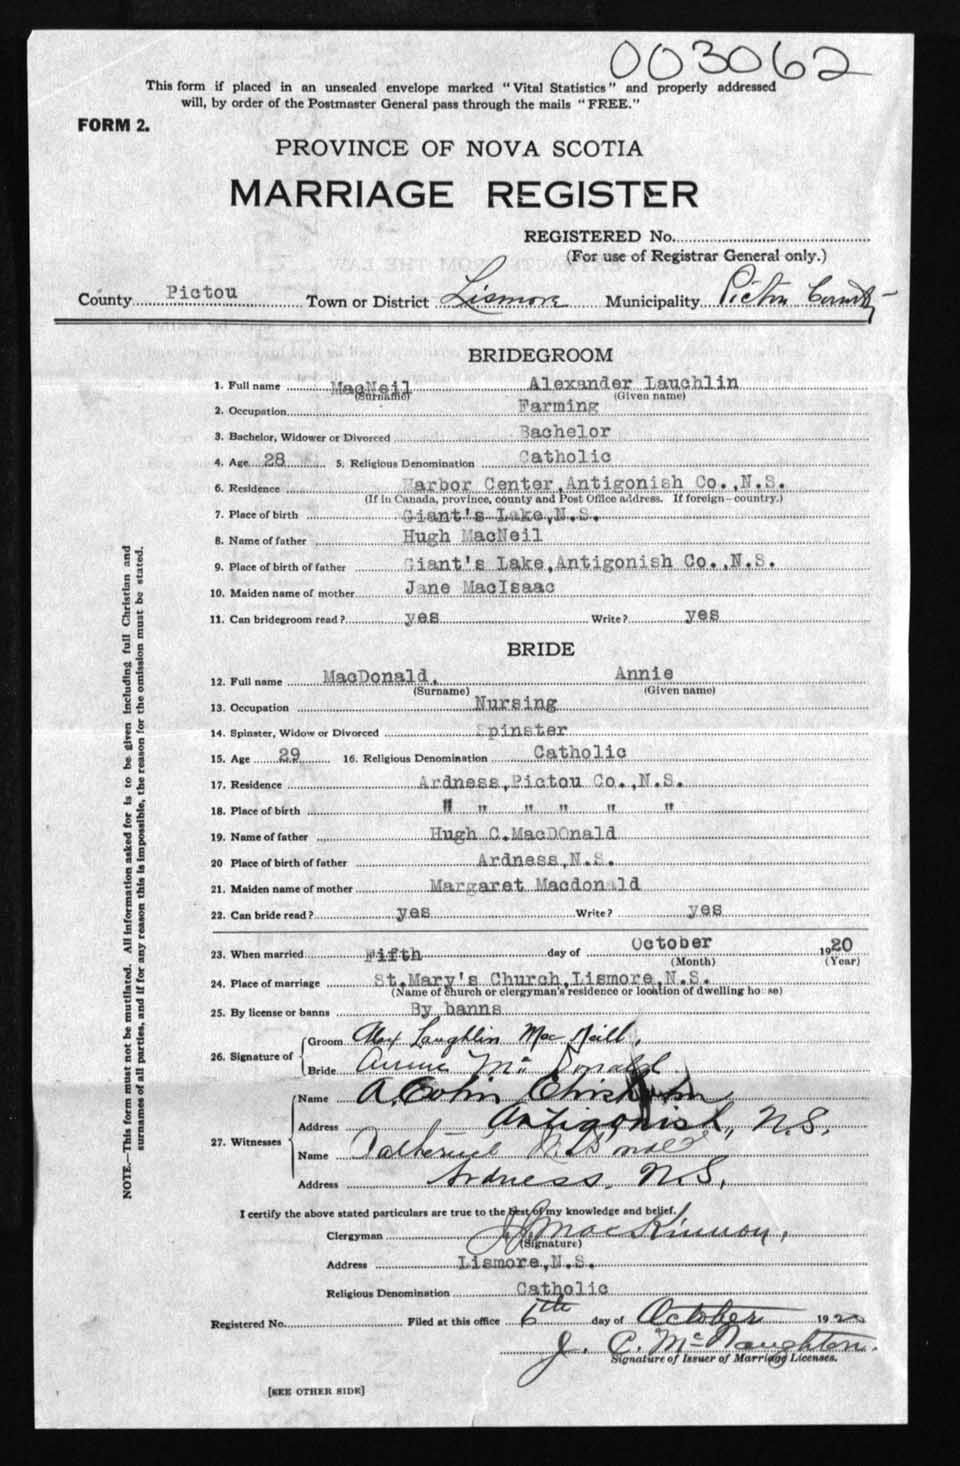 003062
This form if placed in an unsealed envelope marked "Vital Statistics" and properly addressed
will, by order of the Postmaster General pass through the mails "FREE."
FORM 2.
PROVINCE OF NOVA SCOTIA
MARRIAGE REGISTER
REGISTERED No.
(For use of Registrar General only.)
County Pictou Town or District Lismore Municipality Pictou County
BRIDEGROOM
1. Full name MacNeil Alexander Lauchlin
(Surname) (Given name)
2. Occupation Farming
3. Bachelor, Widower or Divorced Bachelor
4. Age 28 5. Religious Denomination Catholic
6. Residence Harbor Center, Antigonish Co., N.S.
(If in Canada, province, county and Post Office address. If foreign—country.)
7. Place of birth Giant's Lake, N.S.
8. Name of father Hugh MacNeil
9. Place of birth of father Giant's Lake, Antigonish Co., N.S.
10. Maiden name of mother Jane MacIsaac
11. Can bridegroom read? yes Write? yes
BRIDE
12. Full name MacDonald, Annie
(Surname) (Given name)
13. Occupation Nursing
14. Spinster, Widow or Divorced Spinster
15. Age 29 16. Religious Denomination Catholic
17. Residence Ardness, Pictou Co., N.S.
18. Place of birth " " " " " "
19. Name of father Hugh C. MacDOnald
20 Place of birth of father Ardness, N.S.
21. Maiden name of mother Margaret Macdonald
22. Can bride read? yes Write? yes
23. When married Fifth day of October 1920
(Month) (Year)
24. Place of marriage St. Mary's Church, Lismore, N.S.
(Name of church or clergyman's residence or location of dwelling house)
25. By license or banns By banns
26. Signature of Groom Alex Laughlin MacNeill,
Bride Annie McDonald
27. Witnesses Name A. Colin Chisholm
Address Antigonish, N.S.
Name Catherine McDonald
Address Ardness, N.S.
I certify the above stated particulars are true to the best of my knowledge and belief.
Clergyman J J MacKinnon,
(Signature)
Address Lismore, N.S.
Religious Denomination Catholic
Registered No. Filed at this office 6th day of October 1920
J. C. McNaughton.
Signature of Issuer of Marriage Licenses.
[SEE OTHER SIDE]
NOTE.—This form must not be mutilated. All information asked for is to be given including full Christian and
surnames of all parties, and if for any reason this is impossible, the reason for the omission must be stated.